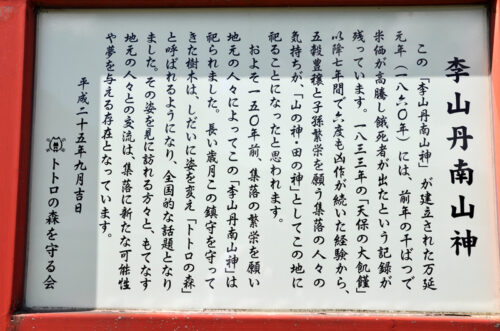 李山丹南山神
この「李山丹南山神」が建立された万延
元年（一八六〇年）には、前年の干ばつで
米価が高騰し餓死者が出たという記録が
残っています。一八三三年の「天保の大飢饉」
以降七年間で六度も凶作が続いた経験から、
五穀豊穣と子孫繁栄を願う集落の人々の
気持ちが、「山の神・田の神」としてこの地に
祀ることになったと思われます。
およそ一五〇年前、集落の繁栄を願い
地元の人々によってこの「李山丹南山神」は
祀られました。長い歳月この鎮守を守って
きた樹木は、しだいに姿を変え「トトロの森」
と呼ばれるようになり、全国的な話題となり
ました。その姿を見に訪れる方々と、もてなす
地元の人々との交流は、集落に新たな可能性
や夢を与える存在となっています。
平成二十五年九月吉日
トトロの森を守る会